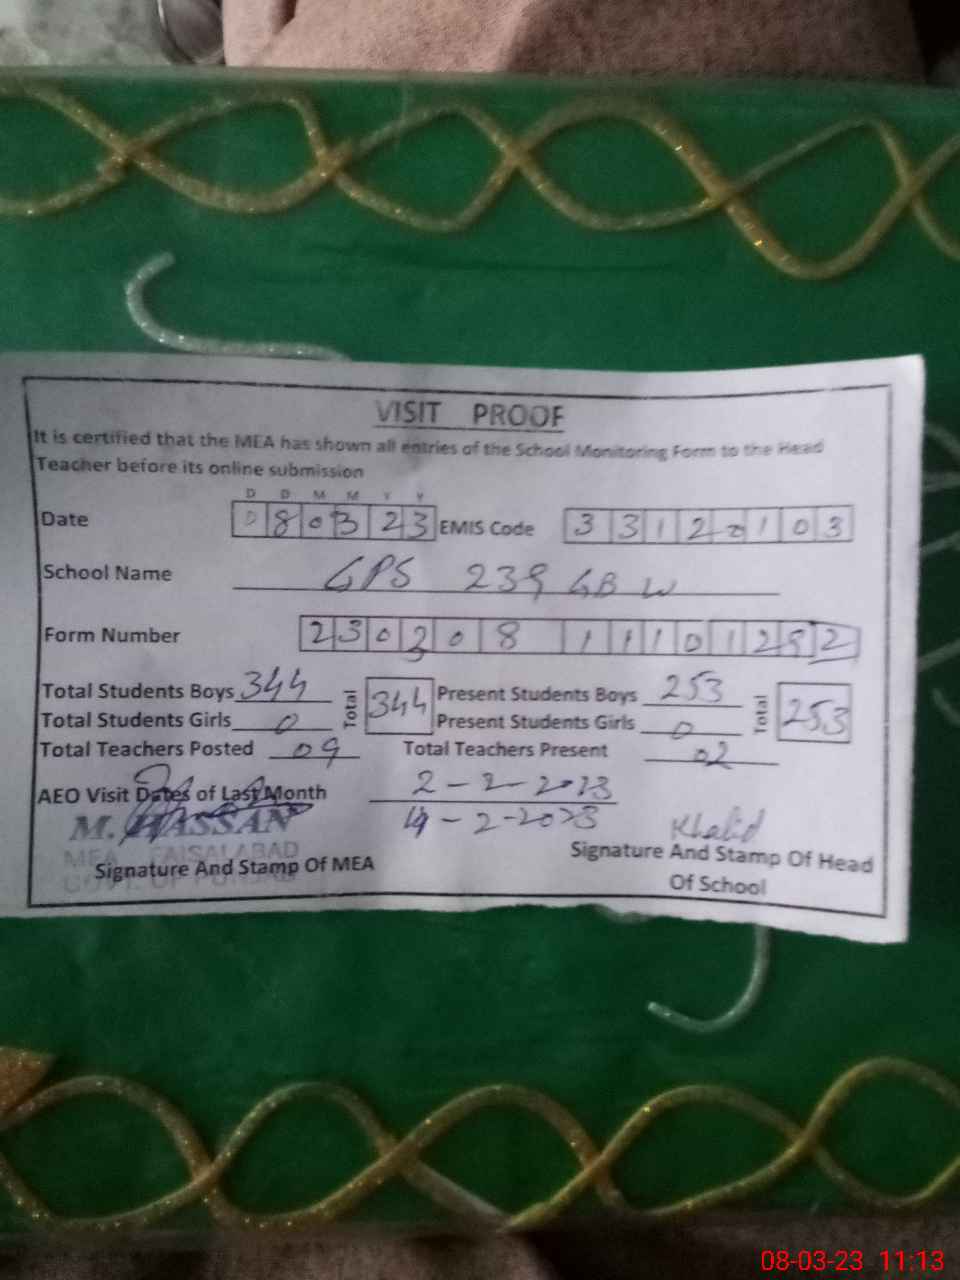 VISIT PROOF
It is certified that the MEA has shown all entries of the School Monitoring Form to the Head
Teacher before its online submission
D D M M Y Y
Date 080323 EMIS Code 33120103
School Name GPS 239 GB W
Form Number 230308 11101252
Total Students Boys 344 Total 344 Present Students Boys 253 Total 253
Total Students Girls 0 Present Students Girls 0
Total Teachers Posted 09 Total Teachers Present 02
AEO Visit Dates of Last Month 2-2-2023
14-2-2023
M. HASSAN Khalid
MEA FAISALABAD
GOVT. OF PUNJAB
Signature And Stamp Of MEA Signature And Stamp Of Head
Of School
08-03-23 11:13